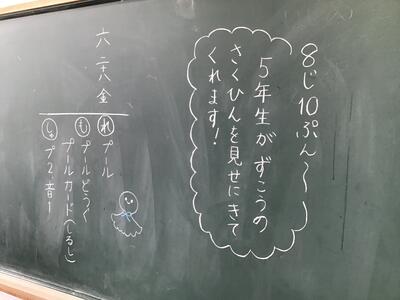 8じ10ぷん〜
5年生がずこうの
さくひんを見せにきて
くれます！
六 二十八 金
れ プール
も プールどうぐ
プールカード（しるし）
しゅ プ2 音1